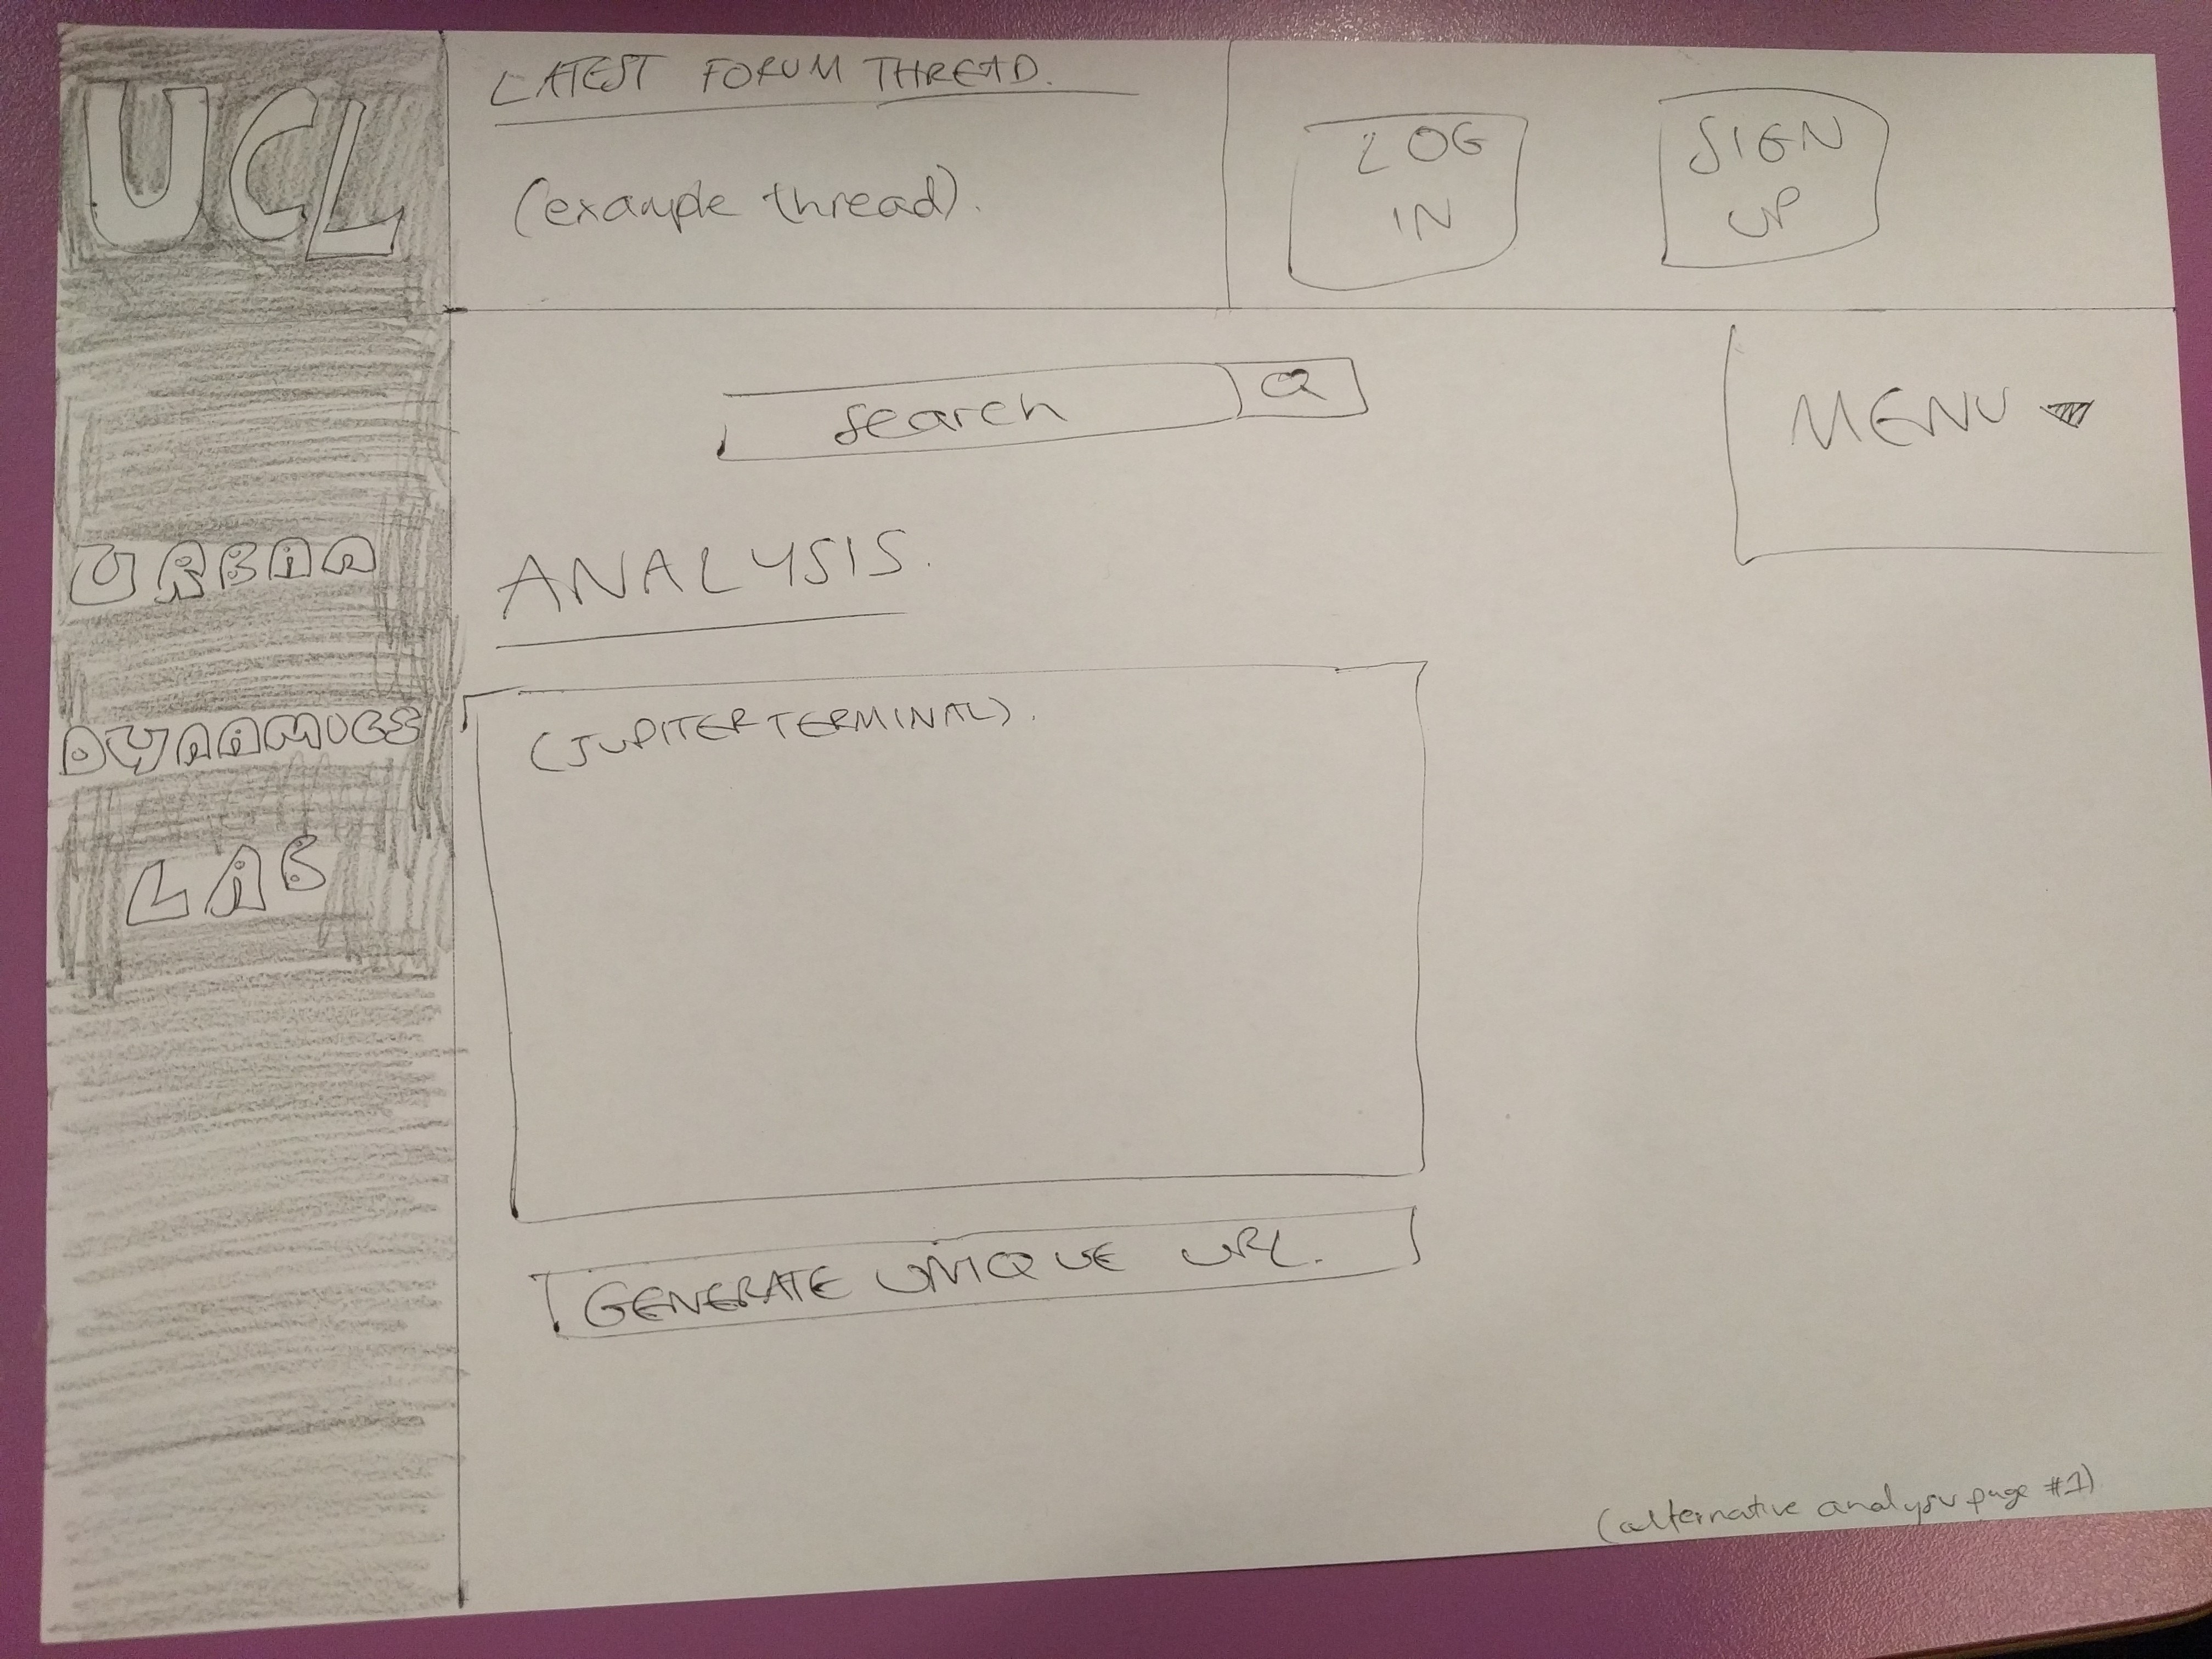 UCL
URBAN
DYNAMICS
LAB
LATEST FORUM THREAD.
(example thread).
LOG
IN
SIGN
UP
search
MENU
ANALYSIS.
(JUPITER TERMINAL).
GENERATE UNIQUE URL.
(alternative analysis page #1)